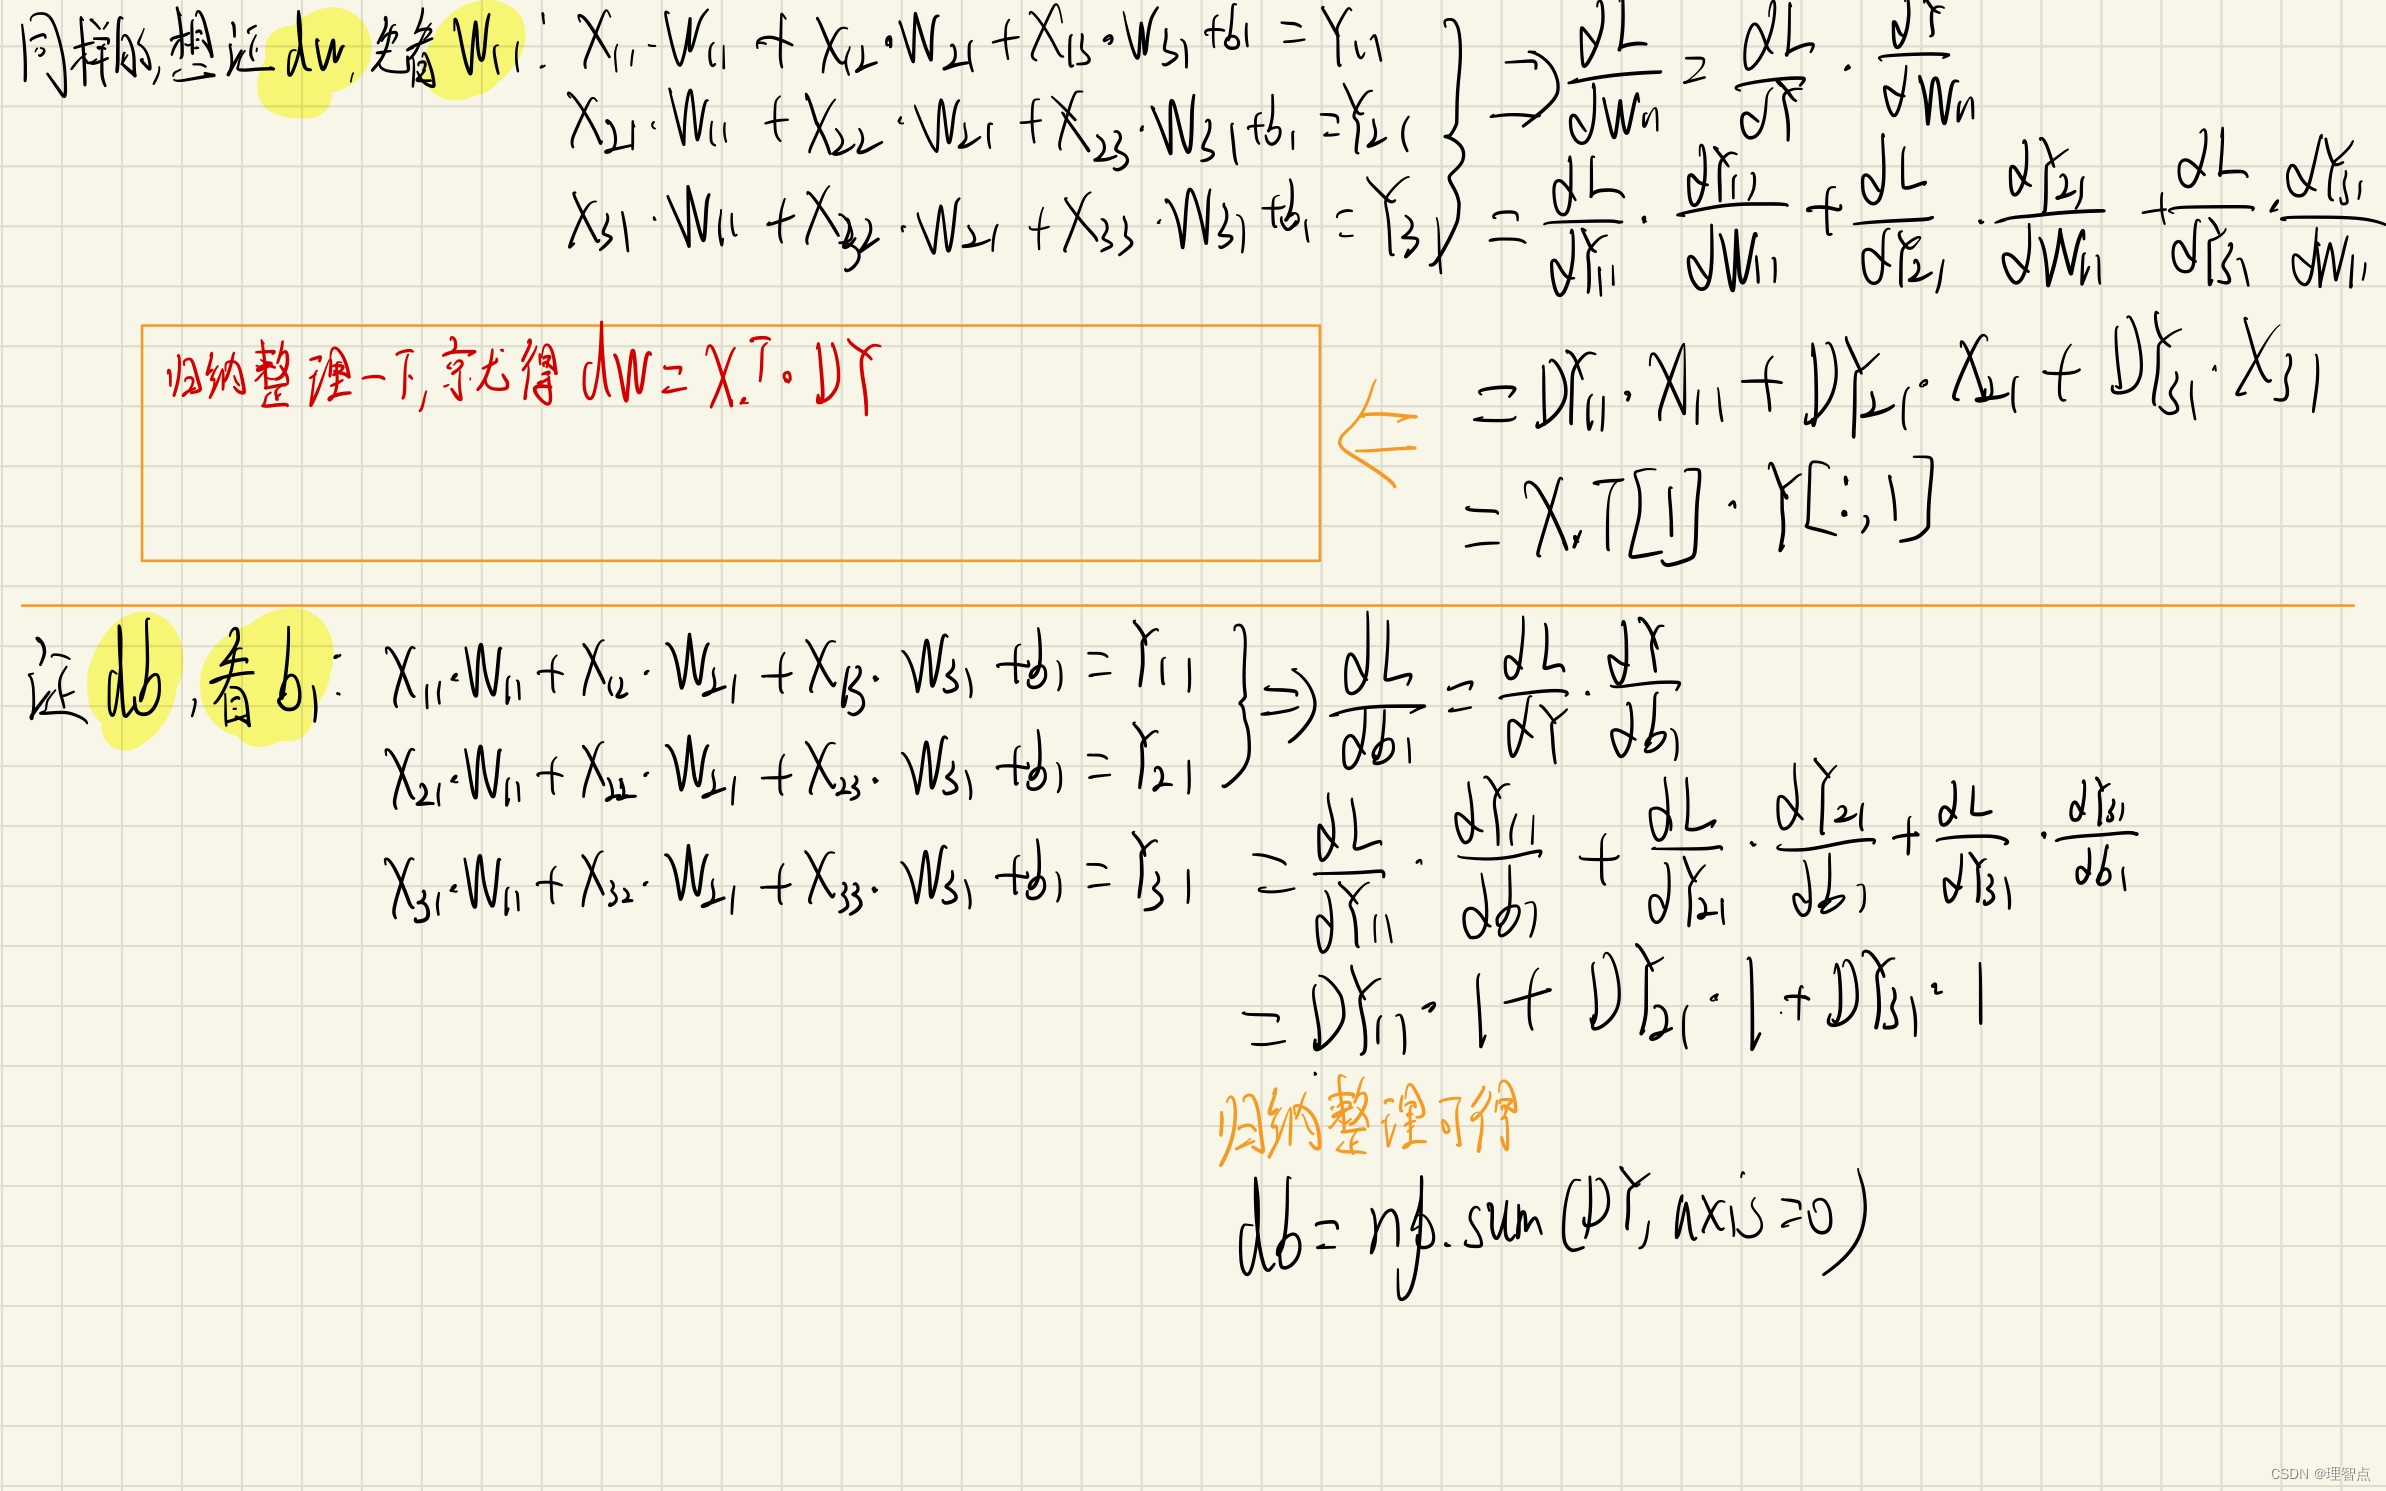 同样的,想证dw,先看W₁₁: X₁₁·W₁₁ + X₁₂·W₂₁ + X₁₃·W₃₁ + b₁ = Y₁₁
X₂₁·W₁₁ + X₂₂·W₂₁ + X₂₃·W₃₁ + b₁ = Y₂₁
X₃₁·W₁₁ + X₃₂·W₂₁ + X₃₃·W₃₁ + b₁ = Y₃₁
⇒ dL/dW₁₁ = dL/dY · dY/dW₁₁
= dL/dY₁₁ · dY₁₁/dW₁₁ + dL/dY₂₁ · dY₂₁/dW₁₁ + dL/dY₃₁ · dY₃₁/dW₁₁
= DY₁₁·X₁₁ + DY₂₁·X₂₁ + DY₃₁·X₃₁
= X.T[1] · Y[:,1]
⇐
归纳整理一下,就得 dW = X.T · DY
证db,看b₁: X₁₁·W₁₁ + X₁₂·W₂₁ + X₁₃·W₃₁ + b₁ = Y₁₁
X₂₁·W₁₁ + X₂₂·W₂₁ + X₂₃·W₃₁ + b₁ = Y₂₁
X₃₁·W₁₁ + X₃₂·W₂₁ + X₃₃·W₃₁ + b₁ = Y₃₁
⇒ dL/db₁ = dL/dY · dY/db₁
= dL/dY₁₁ · dY₁₁/db₁ + dL/dY₂₁ · dY₂₁/db₁ + dL/dY₃₁ · dY₃₁/db₁
= DY₁₁·1 + DY₂₁·1 + DY₃₁·1
归纳整理可得
db = np.sum(DY, axis=0)
CSDN @理智点